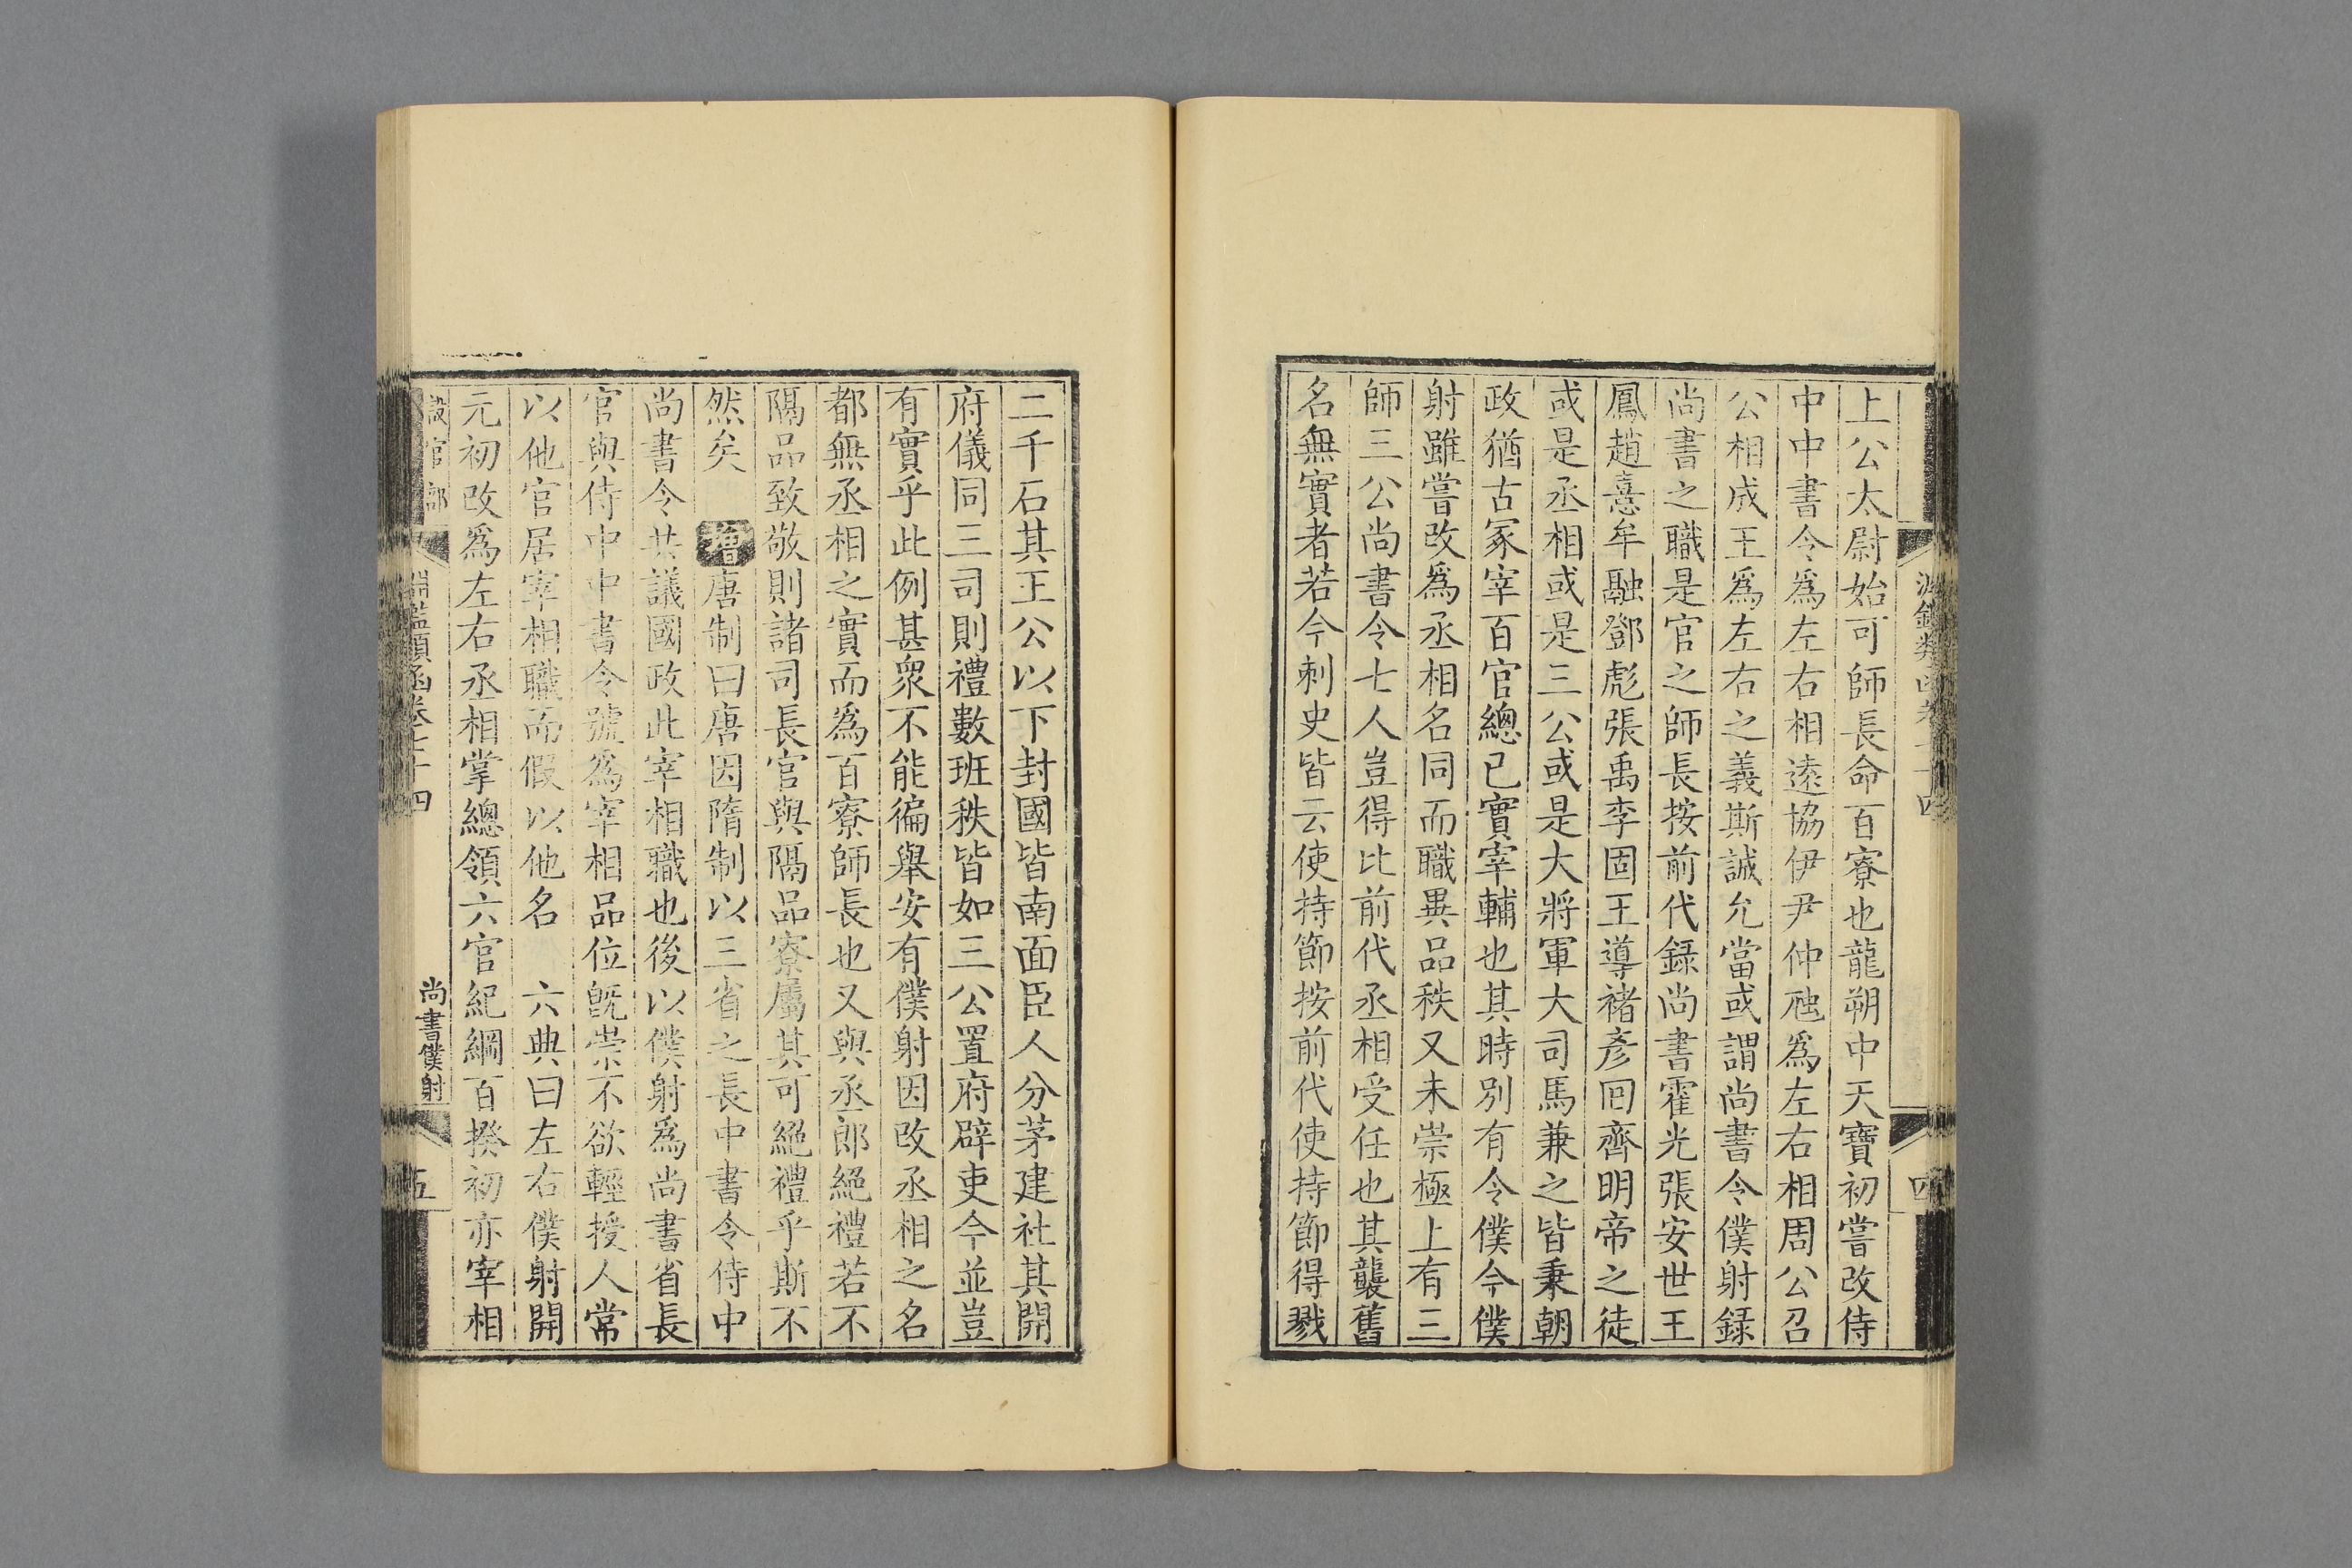 上公太尉始可師長命百寮也龍朔中天寶初嘗改侍
中中書令爲左右相逺協伊尹仲虺爲左右相周公召
公相成王爲左右之義斯誠允當或謂尚書令僕射録
尚書之職是官之師長按前代録尚書霍光張安世王
鳳趙憙牟融鄧彪張禹李固王導褚彦回齊明帝之徒
或是丞相或是三公或是大將軍大司馬兼之皆秉朝
政猶古冢宰百官總已實宰輔也其時别有令僕今僕
射雖嘗改爲丞相名同而職異品秩又未崇極上有三
師三公尚書令七人豈得比前代丞相受任也其襲舊
名無實者若今刺史皆云使持節按前代使持節得戮
二千石其王公以下封國皆南面臣人分茅建社其開
府儀同三司則禮數班秩皆如三公置府辟吏今並豈
有實乎此例甚衆不能徧舉安有僕射因改丞相之名
都無丞相之實而爲百寮師長也又與丞郎絕禮若不
隔品致敬則諸司長官與隔品寮屬其可絕禮乎斯不
然矣 增唐制曰唐因隋制以三省之長中書令侍中
尚書令共議國政此宰相職也後以僕射爲尚書省長
官與侍中中書令號爲宰相品位旣崇不欲輕授人常
以他官居宰相職而假以他名 六典曰左右僕射開
元初改爲左右丞相掌總領六官紀綱百揆初亦宰相
設官部
淵鑑類函卷七十四
尚書僕射
五